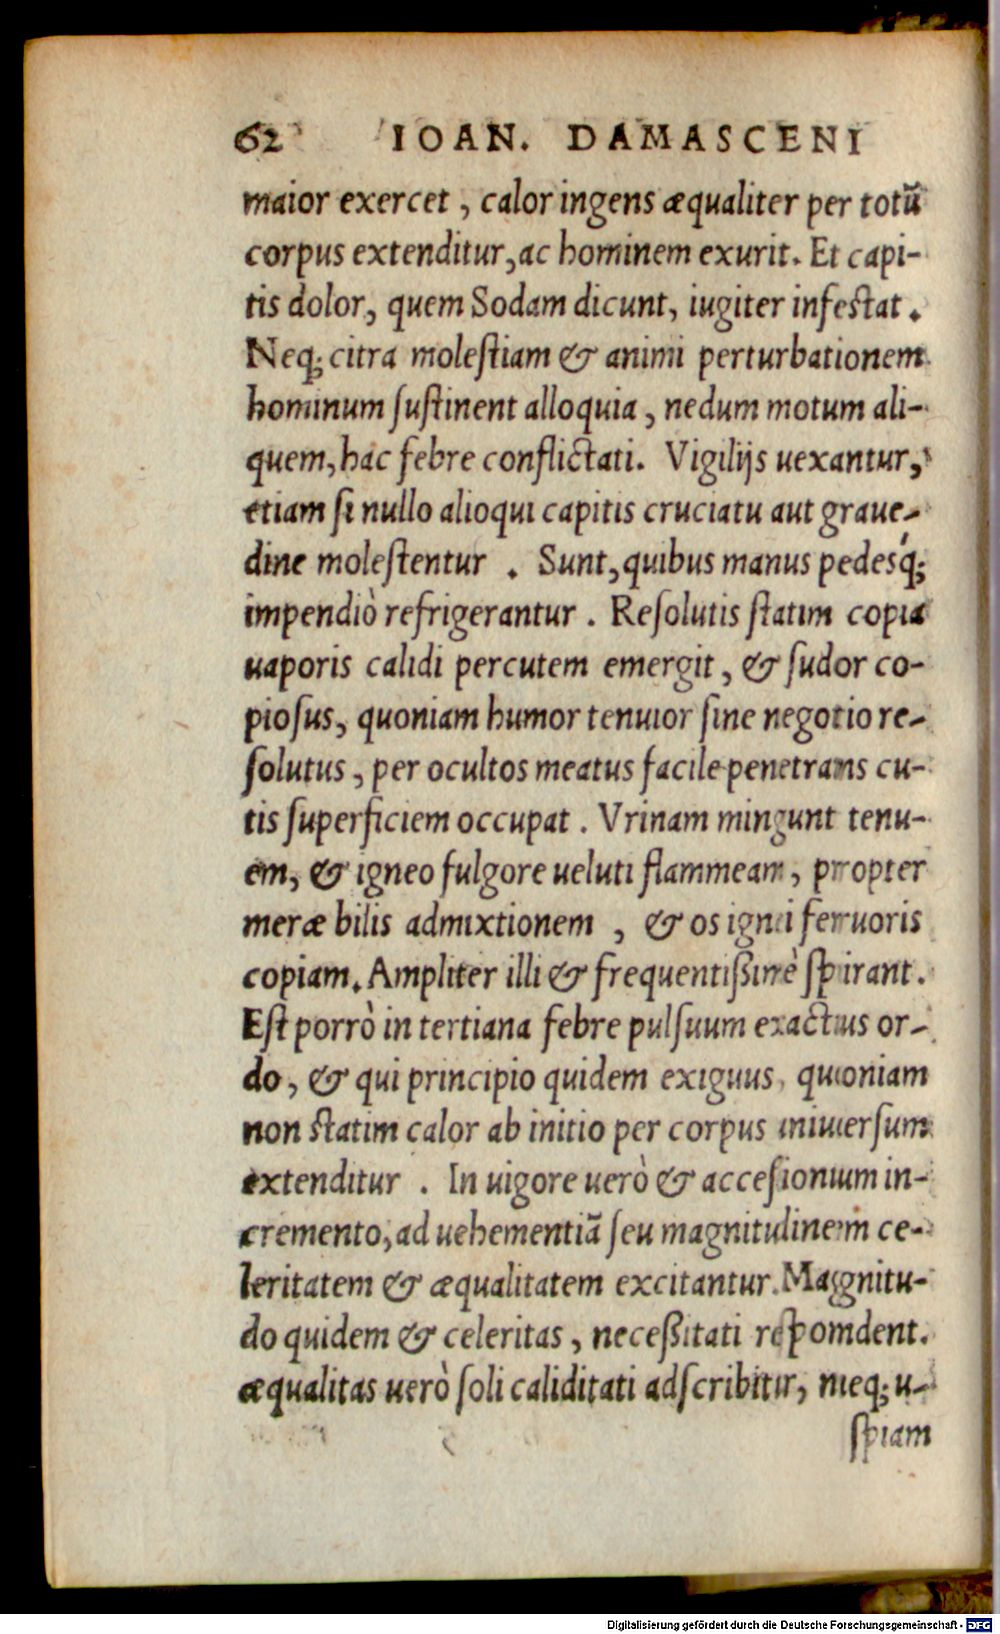 62 IOAN. DAMASCENI
maior exercet, calor ingens æqualiter per totũ
corpus extenditur, ac hominem exurit. Et capi-
tis dolor, quem Sodam dicunt, iugiter infestat.
Neq; citra molestiam & animi perturbationem
hominum sustinent alloquia, nedum motum ali-
quem, hac febre conflictati. Vigilijs uexantur,
etiam si nullo alioqui capitis cruciatu aut graue-
dine molestentur. Sunt, quibus manus pedesq́;
impendiò refrigerantur. Resolutis statim copia
uaporis calidi percutem emergit, & sudor co-
piosus, quoniam humor tenuior sine negotio re-
solutus, per ocultos meatus facile penetrans cu-
tis superficiem occupat. Vrinam mingunt tenu-
em, & igneo fulgore ueluti flammeam, propter
meræ bilis admixtionem, & os ignei feruoris
copiam. Ampliter illi & frequentißimè spirant.
Est porrò in tertiana febre pulsuum exactus or-
do, & qui principio quidem exiguus, quoniam
non statim calor ab initio per corpus uniuersum
extenditur. In uigore uerò & accesionum in-
cremento, ad uehementiã seu magnitudinem ce-
leritatem & æqualitatem excitantur. Magnitu-
do quidem & celeritas, neceßitati respondent.
æqualitas uerò soli caliditati adscribitur, neq; u-
spiam
Digitalisierung gefördert durch die Deutsche Forschungsgemeinschaft - DFG